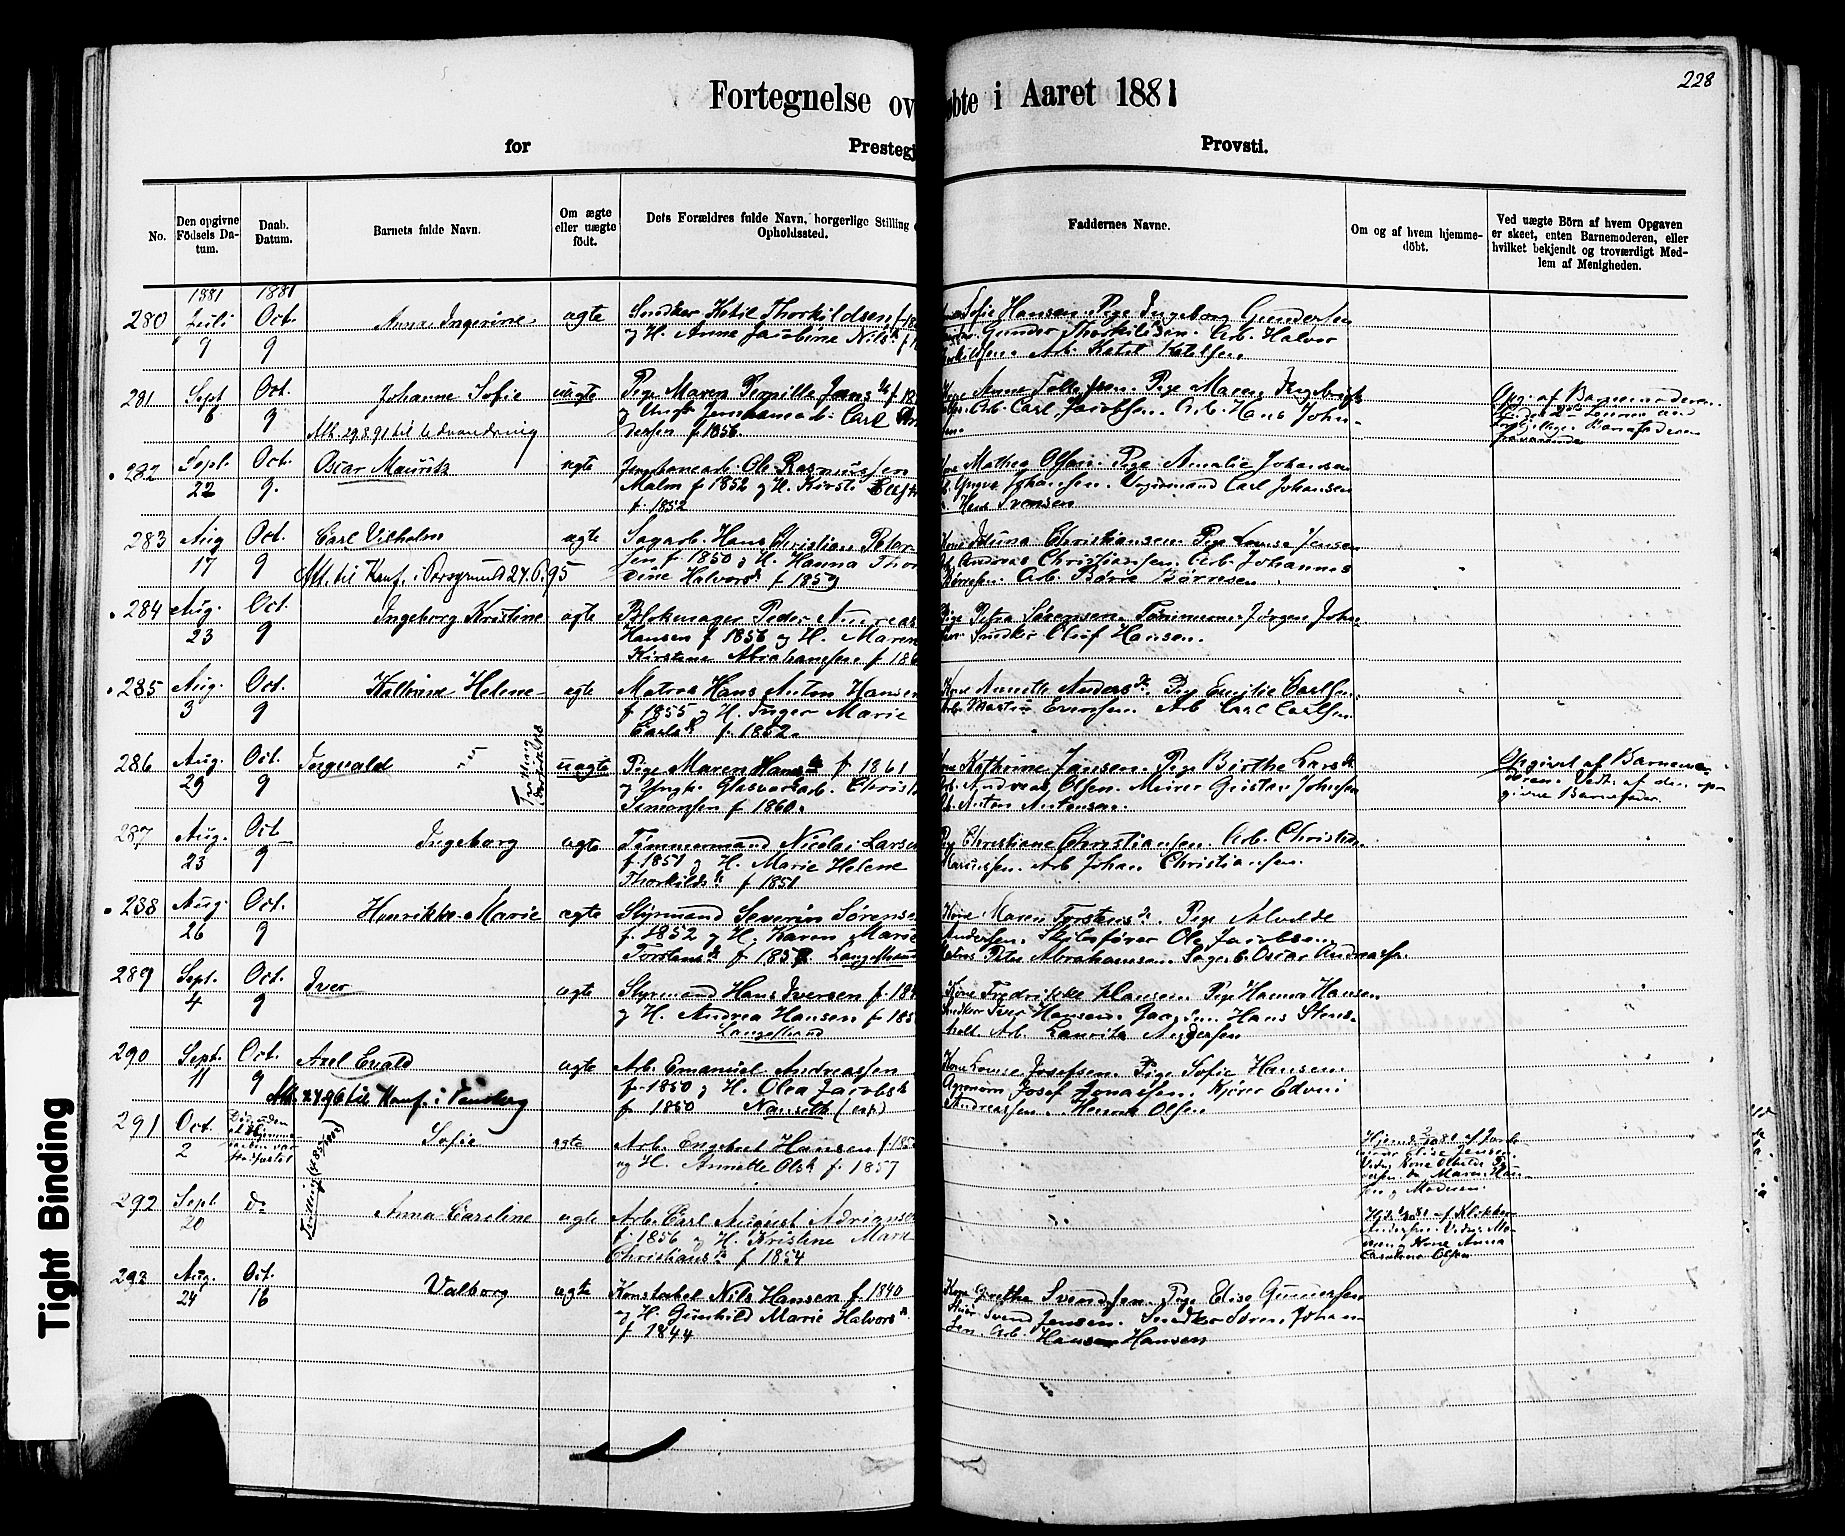 228
Fortegnelse ov
øbte i Aaret 1881
for
Prestegj
Provsti.
No.
Den opgivne Födsels Datum.
Daab. Datum.
Barnets fulde Navn.
Om ægte eller uægte födt.
Dets Forældres fulde Navn, borgerlige Stilling
Opholdssted.
Faddernes Navne.
Om og af hvem hjemmedöbt.
Ved uægte Börn af hvem Opgaven
er skeet, enten Barnemoderen, eller
hvilket bekjendt og troværdigt Medlem af Menigheden.
1881 1881
280 Juli 9 Oct. 9 Anna Ingerine ægte
Snedker Ketil Thorkildsen f. 18
og H. Anne Jacobine Nilsd. f. 1
Sofie Hansen. Pige Ingeborg Gundersen
Gunder Thorkildsen. Arb. Halvor
Arb. Ketil Ketilsen.
281 Sept. 8 Oct. 9 Johanne Sofie uægte
Att. 29.8.91 til Udvandring
Pige Maren Pernille Jensd. f. 18
og Ungk. Jernbanearb. Carl An
dersen f. 1856.
Anne Tollefsen. Pige Maren Ingebrigts
Arb. Carl Jacobsen. Arb. Hans Johan-
sen.
Opg. af Barnemoderen
282 Sept. 22 Oct. 9. Oscar Mauritz ægte
Jernbanearb. Ole Rasmussen
Malm f. 1852 og H. Kirsti
f. 1852
Kone Mathea Olsen. Pige Amalie Johansen
Yngve Johansen. Vognmand Carl Johansen
Hans Svensen
283 Aug. 17 Oct. 9 Carl Vilhelm ægte
Att. til Konf. i Porsgrund 27.6.95
Sagarb. Hans Christian Peter
sen f. 1850 og H. Hanna Thor
ine Halvorsd. f. 1859
Kone Iduna Christiansen. Pige Lovise Jensen
Andreas Christiansen. Arb. Johannes
Børresen. Arb. Børre Børresen.
284 Aug. 23 Oct. 9 Ingeborg Kristine ægte
Blokmager Peder Andreas
Hansen f. 1856 og H. Maren
Kirstine Abrahamsen f. 186
Pige Petra Sørensen. Tømmerm. Jørgen Johan
sen. Snedker Oluf Hansen.
285 Aug. 3 Oct. 9 Kathrine Helene ægte
Matros Hans Anton Hansen
f. 1855 og H. Inger Marie
Carlsd. f. 1852.
Kone Annette Andersd. Pige Emilie Carlsen.
Arb. Martin Evensen. Arb. Carl Carlsen.
286 Aug. 29 Oct. 9 Ingvald uægte
Pige Maren Hansd. f. 1861
og Ungk. Glasværkarb. Christ
Simonsen f. 1860.
Kone Kathrine Jansen. Pige Birthe Larsd.
Arb. Andreas Olsen. Murer Gustav Johnsen
Arb. Anton Antonsen.
Opgivet af Barnemo
deren. Vedt. af den op-
givne Barnefader.
287 Aug. 23 Oct. 9 Ingeborg ægte
Tømmermand Nicolai Larsen
f. 1851 og H. Marie Helene
Thorkildsd. f. 1851
Pig. Christiane Christiansen. Arb. Christian
Rasmussen. Arb. Johan Christiansen.
288 Aug. 26 Oct. 9 Henrikke Marie ægte
Styrmand Severin Sørensen
f. 1852 og H. Karen Marie
f. 185 Langestrand
Kone Maren Torstensd. Pige Alvilde
Andersen. Skibsfører Ole Jacobsen.
Matros Peter Abrahamsen. Sagarb. Oscar Andreassen.
289 Sept. 4 Oct. 9 Iver ægte
Styrmand Hans Iversen f. 18
og H. Andrea Hansen f. 185
Langestrand
Kone Fredrikke Klausen. Pige Hanna Hansen
Snedker Iver Hansen. Hans Stens-
holt. Arb. Lauritz Andersen
290 Sept. 11 Oct. 9 Axel Evald ægte
Att. 2.4.96 til Konf. i Tønsberg
Arb. Emanuel Andreassen
f. 1850 og H. Olea Jacobsd.
f. 1850 Nanseth
Kone Lovise Josefsen. Pige Sofie Hansen.
Agronom Josef Jonassen. Kjører Edvin
Andreassen. Henrik Olsen
291 Oct. 2 Sofie ægte
Arb. Engebret Hansen f. 185
og H. Annette Olsd. f. 1857
292 Sept. 20 do Anna Caroline ægte
Arb. Carl August Adriansen
f. 1856 og H. Kristine Marie
Christiansd. f. 1854
Kone Anna
Caroline Olsen
293 Aug. 24 Oct. 16 Valborg ægte
Konstabel Nils Hansen f. 1840
og H. Gunhild Marie Halvorsd.
f. 1844
Kone Grethe Svendsen. Pige Elise Gundersen
Svend Jensen. Snedker Søren Johan
sen. Arb. Hans Hansen
Tight Binding